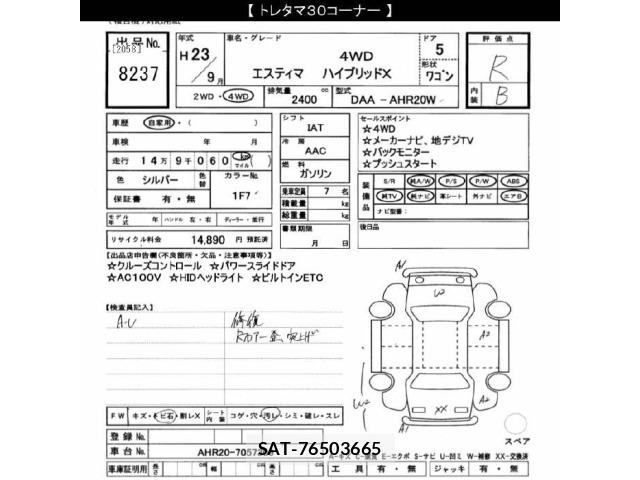 【 トレタマ30コーナー 】
出品No. [2058] 8237
年式 H23年 9月
車名・グレード 4WD
エスティマ ハイブリッドX
ドア 5
形状 ワゴン
評価点 R
内装 B
2WD・4WD
排気量 2400 cc
型式 DAA - AHR20W
車歴 自家用・( )
車検 年 月
走行 14万 9千 060 km マイル ( )
色 シルバー 色替 カラーNo. 1F7
保証書 有・無
モデル年式 年 ハンドル 左・右 ディーラー・並行
リサイクル料金 14,890 円 預託済
シフト IAT
冷房 AAC
燃料 ガソリン
乗車定員 7 名
積載量 kg
総重量 kg
書類期限 月 日
セールスポイント
☆4WD
☆メーカーナビ、地デジTV
☆バックモニター
☆プッシュスタート
装備品 S/R 純A/W P/S P/W ABS
純TV 純ナビ 革シート 外ナビ エアB
ナビ型番:
後日品
【出品店申告欄(不良箇所・欠品・注意事項等)】
☆クルーズコントロール ☆パワースライドドア
☆AC100V ☆HIDヘッドライト ☆ビルトインETC
【検査員記入】
A・U 修復
A1
W
A2
W2
A2
XX
A1
スペア
FW キズ・トビ石・割レX シート内張 コゲ・穴・汚レ・シミ・破レ・スレ
登録No.
車台No. AHR20-7057
SAT-76503665
E=エクボ S=サビ U=凹ミ W=補修 XX=交換済
車庫証明用 長さ cm 幅 cm 高さ cm
工具 有・無 ジャッキ 有・無